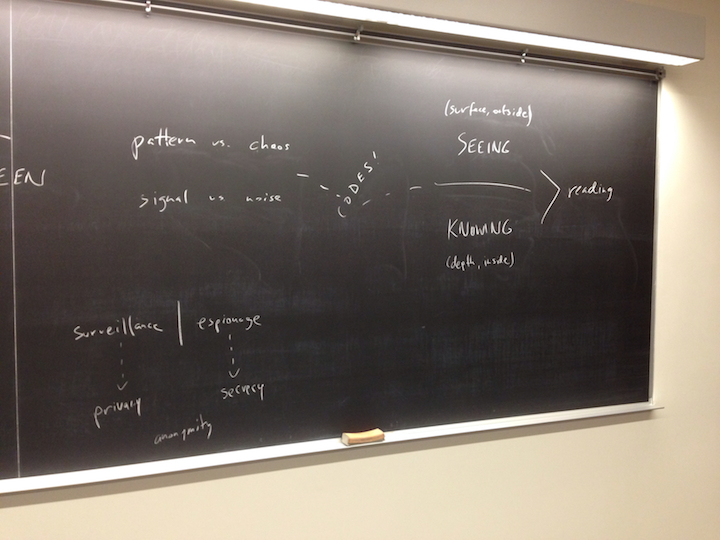 EEN
pattern vs. chaos
signal vs noise
CODES!
(surface, outside)
SEEING
KNOWING
(depth, inside)
reading
surveillance | espionage
privacy
secrecy
anonymity